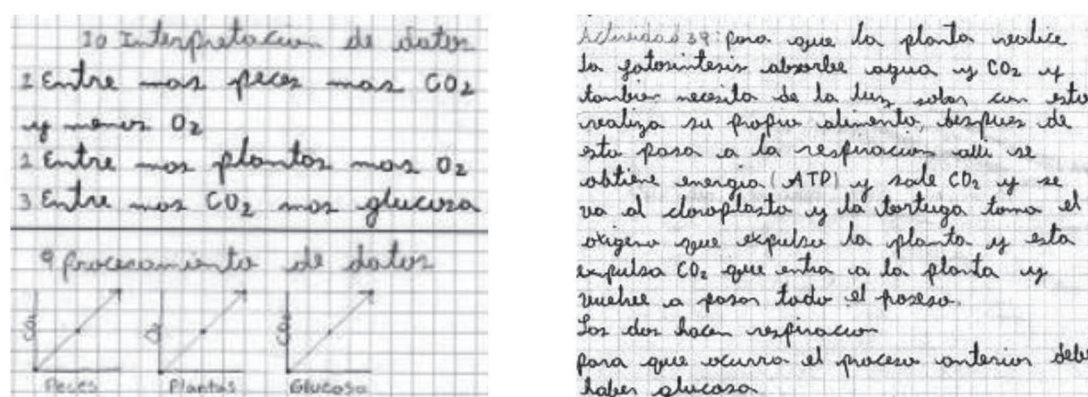 10 Interpretacion de datos
1 Entre mas peces mas CO2
y menos O2
2 Entre mas plantas mas O2
3 Entre mas CO2 mas glucosa
9 procesamiento de datos
Peces
Plantas
Glucosa
Actividad 39: para que la planta realice
la fotosintesis absorbe agua y CO2 y
tambien necesita de la luz solar con esto
realiza su propio alimento, despues de
esto pasa a la respiracion alli se
obtiene energia (ATP) y sale CO2 y se
va al cloroplasto y la tortuga toma el
oxigeno que expulso la planta y esta
expulsa CO2 que entra a la planta y
vuelve a pasar todo el proseso.
Los dos hacen respiracion
para que ocurra el proceso anterior debe
haber glucosa